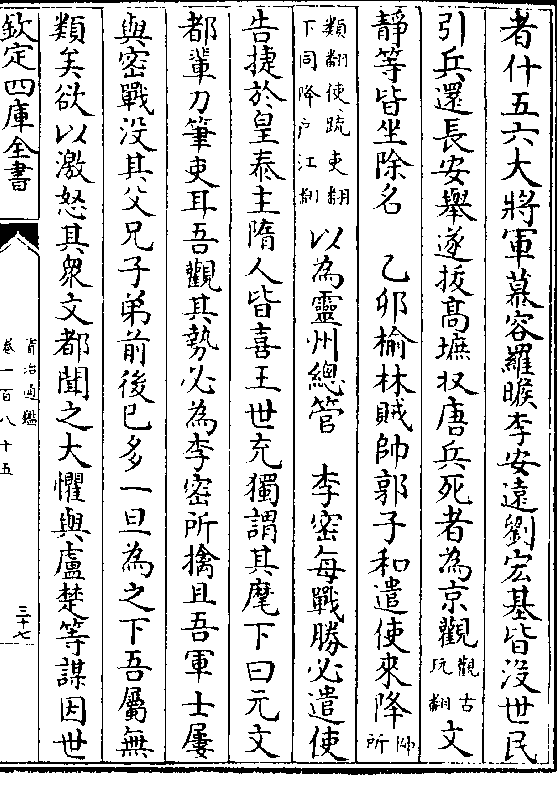 者什五六大將軍慕容羅睺李安遠劉宏基皆沒世民
引兵還長安舉遂拔髙墌収唐兵死者為京觀觀古玩翻文
靜等皆坐除名　乙卯榆林賊帥郭子和遣使來降帥所
類翻使疏吏翻下同降户江翻以為靈州總管　李密每戰勝必遣使
告捷於皇泰主隋人皆喜王世充獨謂其麾下曰元文
都輩刀筆吏耳吾觀其勢必為李密所擒且吾軍士屢
與密戰没其父兄子弟前後已多一旦為之下吾屬無
類矣欲以激怒其衆文都聞之大懼與盧楚等謀因世
欽定四庫全書
資治通鑑
卷一百八十五
三十七